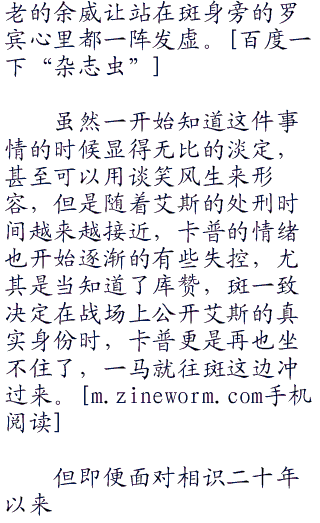 老的余威让站在斑身旁的罗
宾心里都一阵发虚。[百度一
下“杂志虫”]
虽然一开始知道这件事
情的时候显得无比的淡定，
甚至可以用谈笑风生来形
容，但是随着艾斯的处刑时
间越来越接近，卡普的情绪
也开始逐渐的有些失控，尤
其是当知道了库赞，斑一致
决定在战场上公开艾斯的真
实身份时，卡普更是再也坐
不住了，一马就往斑这边冲
过来。[m.zineworm.com手机
阅读]
但即便面对相识二十年
以来